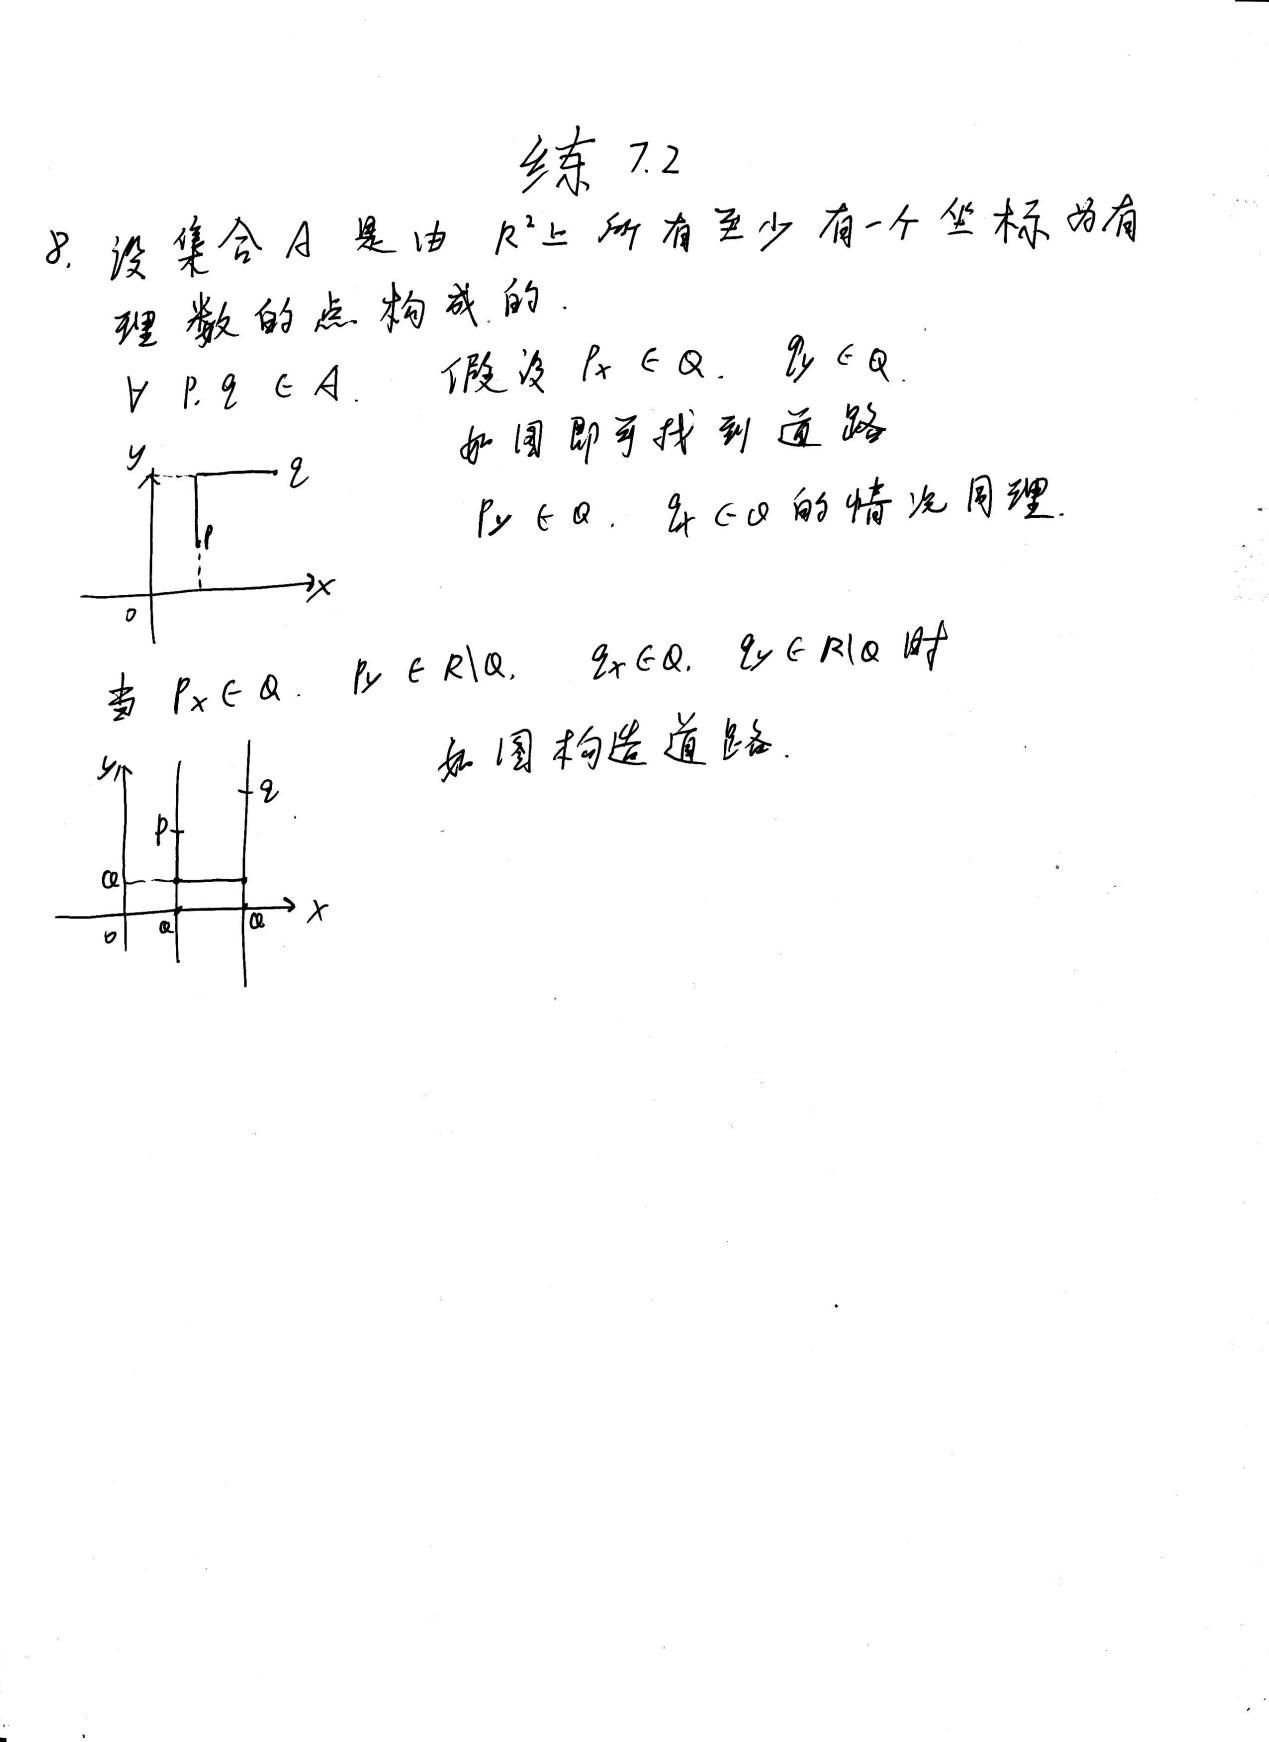 练 7.2
8. 设集合 A 是由 R²上所有至少有一个坐标为有
理数的点构成的.
∀ p, q ∈ A. 假设 Px ∈ Q. qy ∈ Q.
如图即可找到道路
Py ∈ Q. qx ∈ Q 的情况同理.
y
q
p
x
0
当 Px ∈ Q. Py ∈ R\Q. qx ∈ Q. qy ∈ R\Q 时
如图构造道路.
y
q
p
Q
x
0
Q
Q